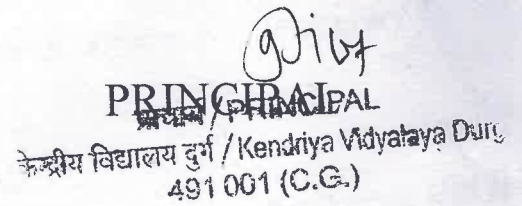 PRINCIPAL
प्राचार्य / PRINCIPAL
केन्द्रीय विद्यालय दुर्ग / Kendriya Vidyalaya Durg
491 001 (C.G.)